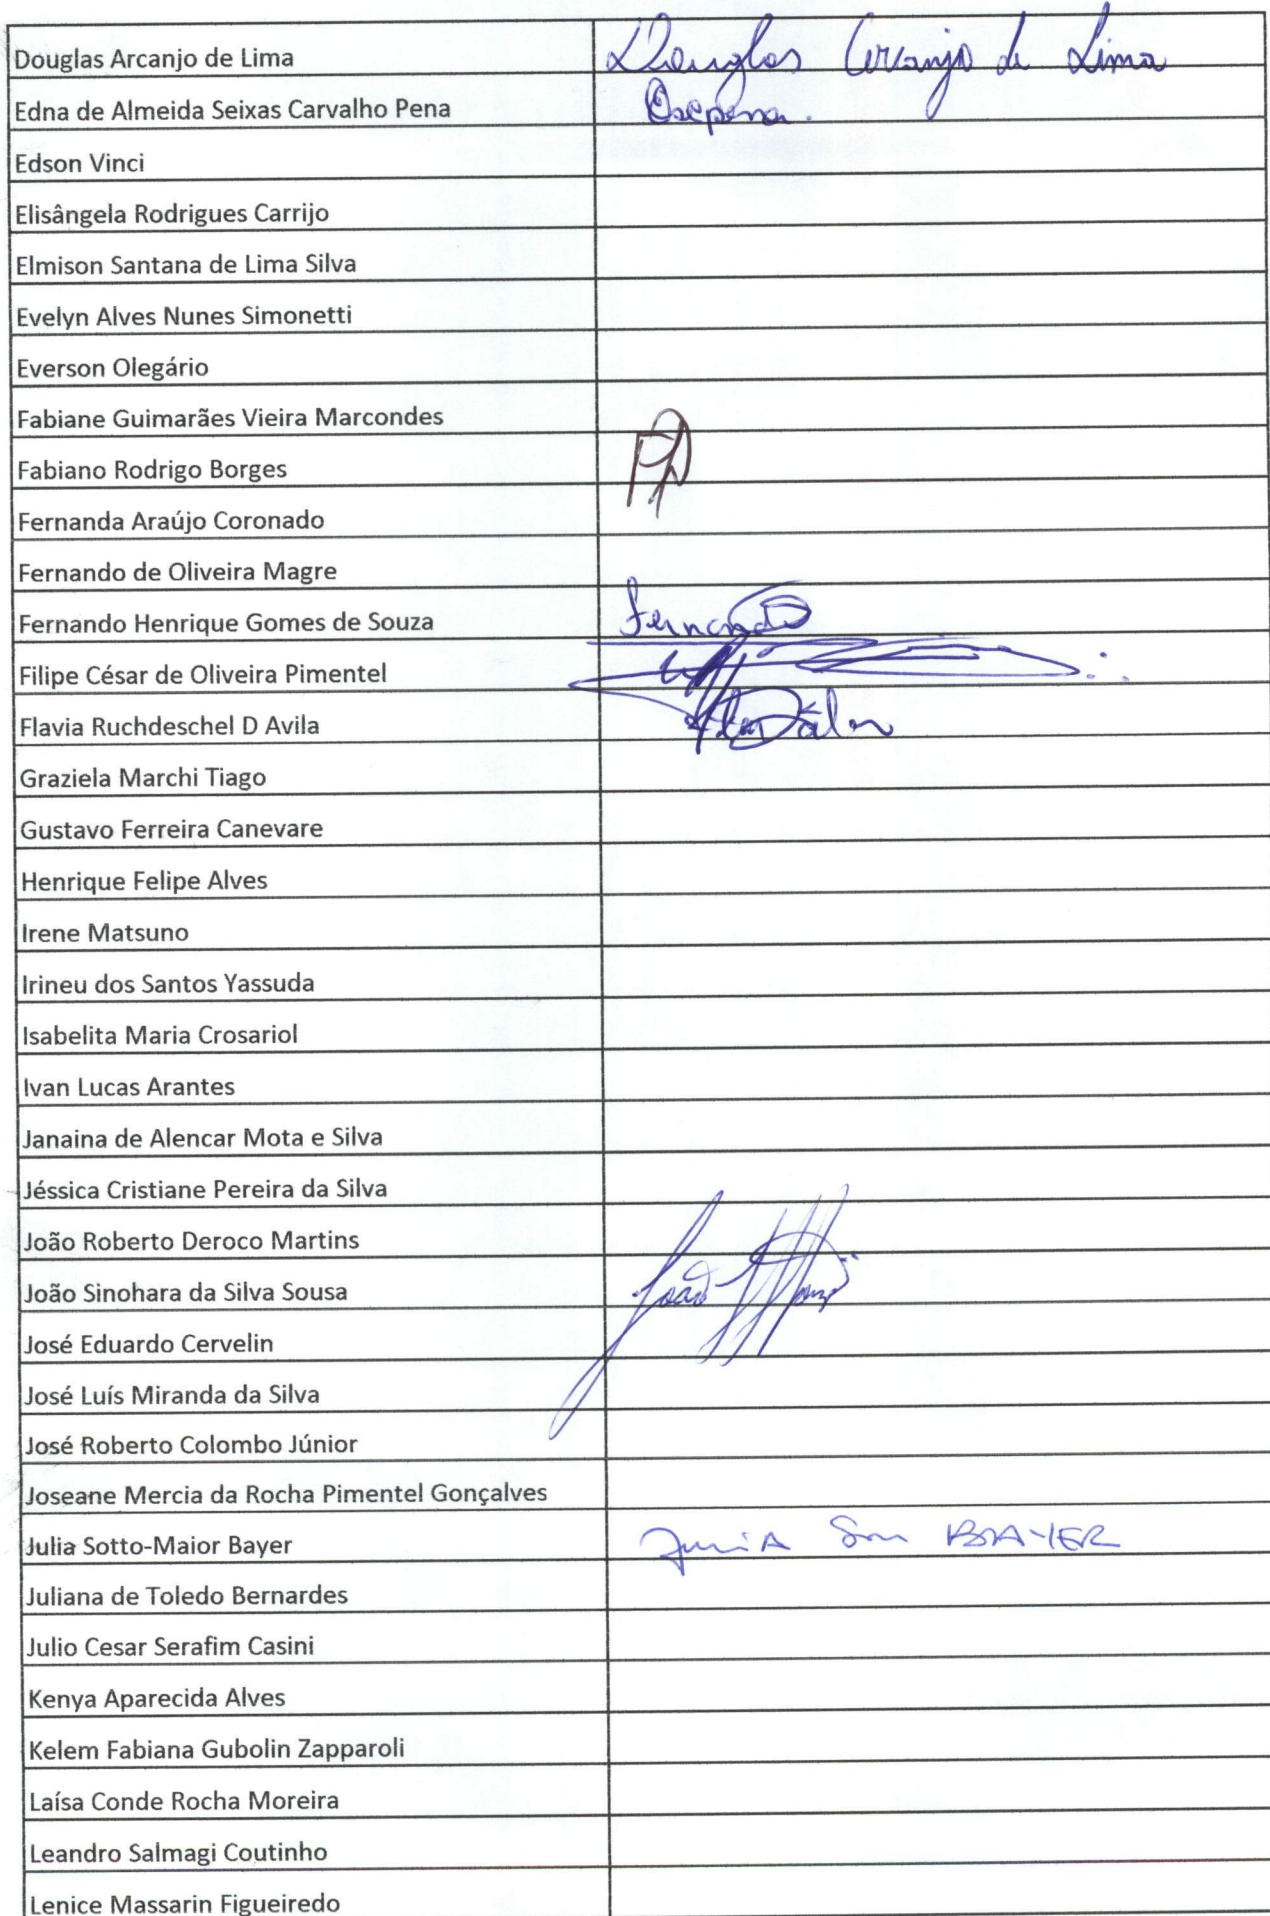 Douglas Arcanjo de Lima Douglas Arcanjo de Lima
Edna de Almeida Seixas Carvalho Pena
Edson Vinci
Elisângela Rodrigues Carrijo
Elmison Santana de Lima Silva
Evelyn Alves Nunes Simonetti
Everson Olegário
Fabiane Guimarães Vieira Marcondes
Fabiano Rodrigo Borges
Fernanda Araújo Coronado
Fernando de Oliveira Magre
Fernando Henrique Gomes de Souza Fernando
Filipe César de Oliveira Pimentel
Flavia Ruchdeschel D Avila
Graziela Marchi Tiago
Gustavo Ferreira Canevare
Henrique Felipe Alves
Irene Matsuno
Irineu dos Santos Yassuda
Isabelita Maria Crosariol
Ivan Lucas Arantes
Janaina de Alencar Mota e Silva
Jéssica Cristiane Pereira da Silva
João Roberto Deroco Martins
João Sinohara da Silva Sousa João
José Eduardo Cervelin
José Luís Miranda da Silva
José Roberto Colombo Júnior
Joseane Mercia da Rocha Pimentel Gonçalves
Julia Sotto-Maior Bayer BAYER
Juliana de Toledo Bernardes
Julio Cesar Serafim Casini
Kenya Aparecida Alves
Kelem Fabiana Gubolin Zapparoli
Laísa Conde Rocha Moreira
Leandro Salmagi Coutinho
Lenice Massarin Figueiredo